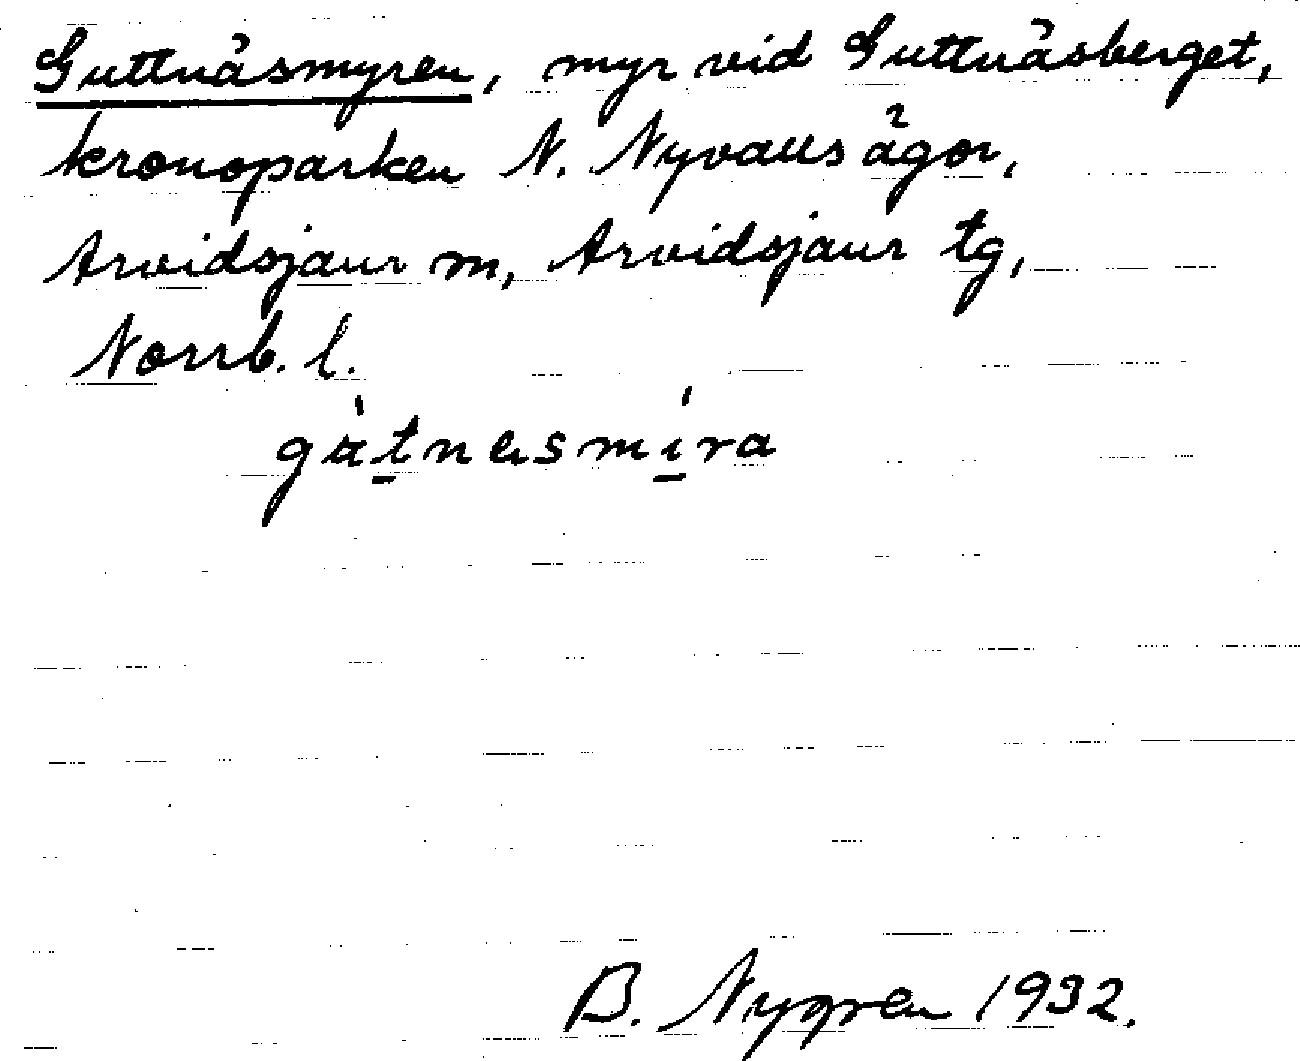 Guttnäsmyren, myr vid Guttnäsberget,
kronoparken N. Nyvalls ägor,
Arvidsjaur m, Arvidsjaur tg,
Norrb. l.
B. Nygren 1932.